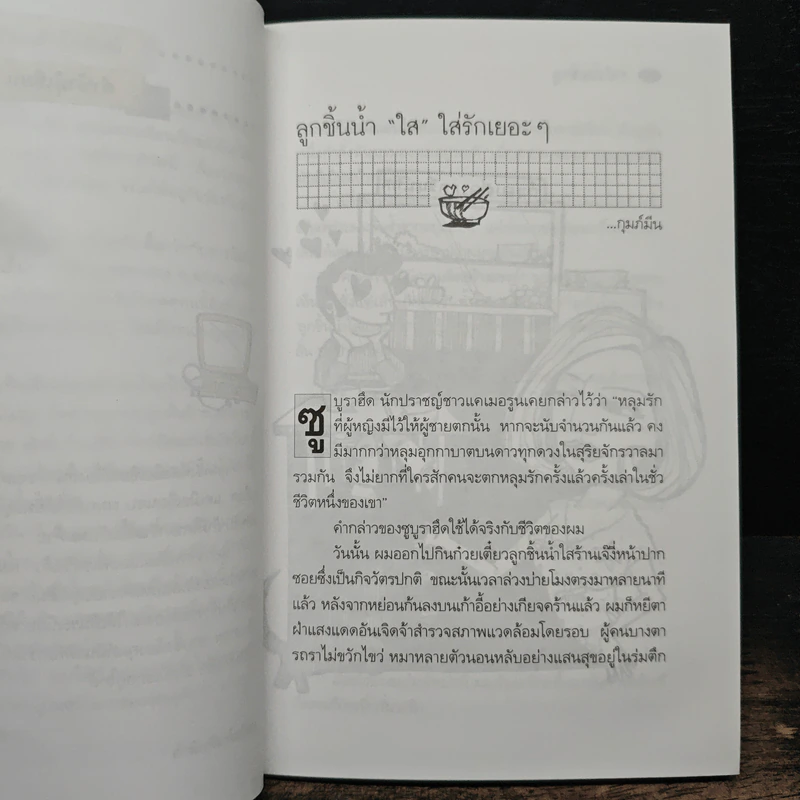 ลูกชิ้นน้ำ "ใส" ใส่รักเยอะๆ
...กุมภ์มีน
ซูบูราฮึด นักปราชญ์ชาวแคเมอรูนเคยกล่าวไว้ว่า "หลุมรัก
ที่ผู้หญิงมีไว้ให้ผู้ชายตกนั้น หากจะนับจำนวนกันแล้ว คง
มีมากกว่าหลุมอุกกาบาตบนดาวทุกดวงในสุริยจักรวาลมา
รวมกัน จึงไม่ยากที่ใครสักคนจะตกหลุมรักครั้งแล้วครั้งเล่าในชั่ว
ชีวิตหนึ่งของเขา"
คำกล่าวของซูบูราฮึดใช้ได้จริงกับชีวิตของผม
วันนั้น ผมออกไปกินก๋วยเตี๋ยวลูกชิ้นน้ำใสร้านเจ๊งี่หน้าปาก
ซอยซึ่งเป็นกิจวัตรปกติ ขณะนั้นเวลาล่วงบ่ายโมงตรงมาหลายนาที
แล้ว หลังจากหย่อนก้นลงบนเก้าอี้อย่างเกียจคร้านแล้ว ผมก็หยีตา
ฝ่าแสงแดดอันเจิดจ้าสำรวจสภาพแวดล้อมโดยรอบ ผู้คนบางตา
รถราไม่ขวักไขว่ หมาหลายตัวนอนหลับอย่างแสนสุขอยู่ในร่มตึก